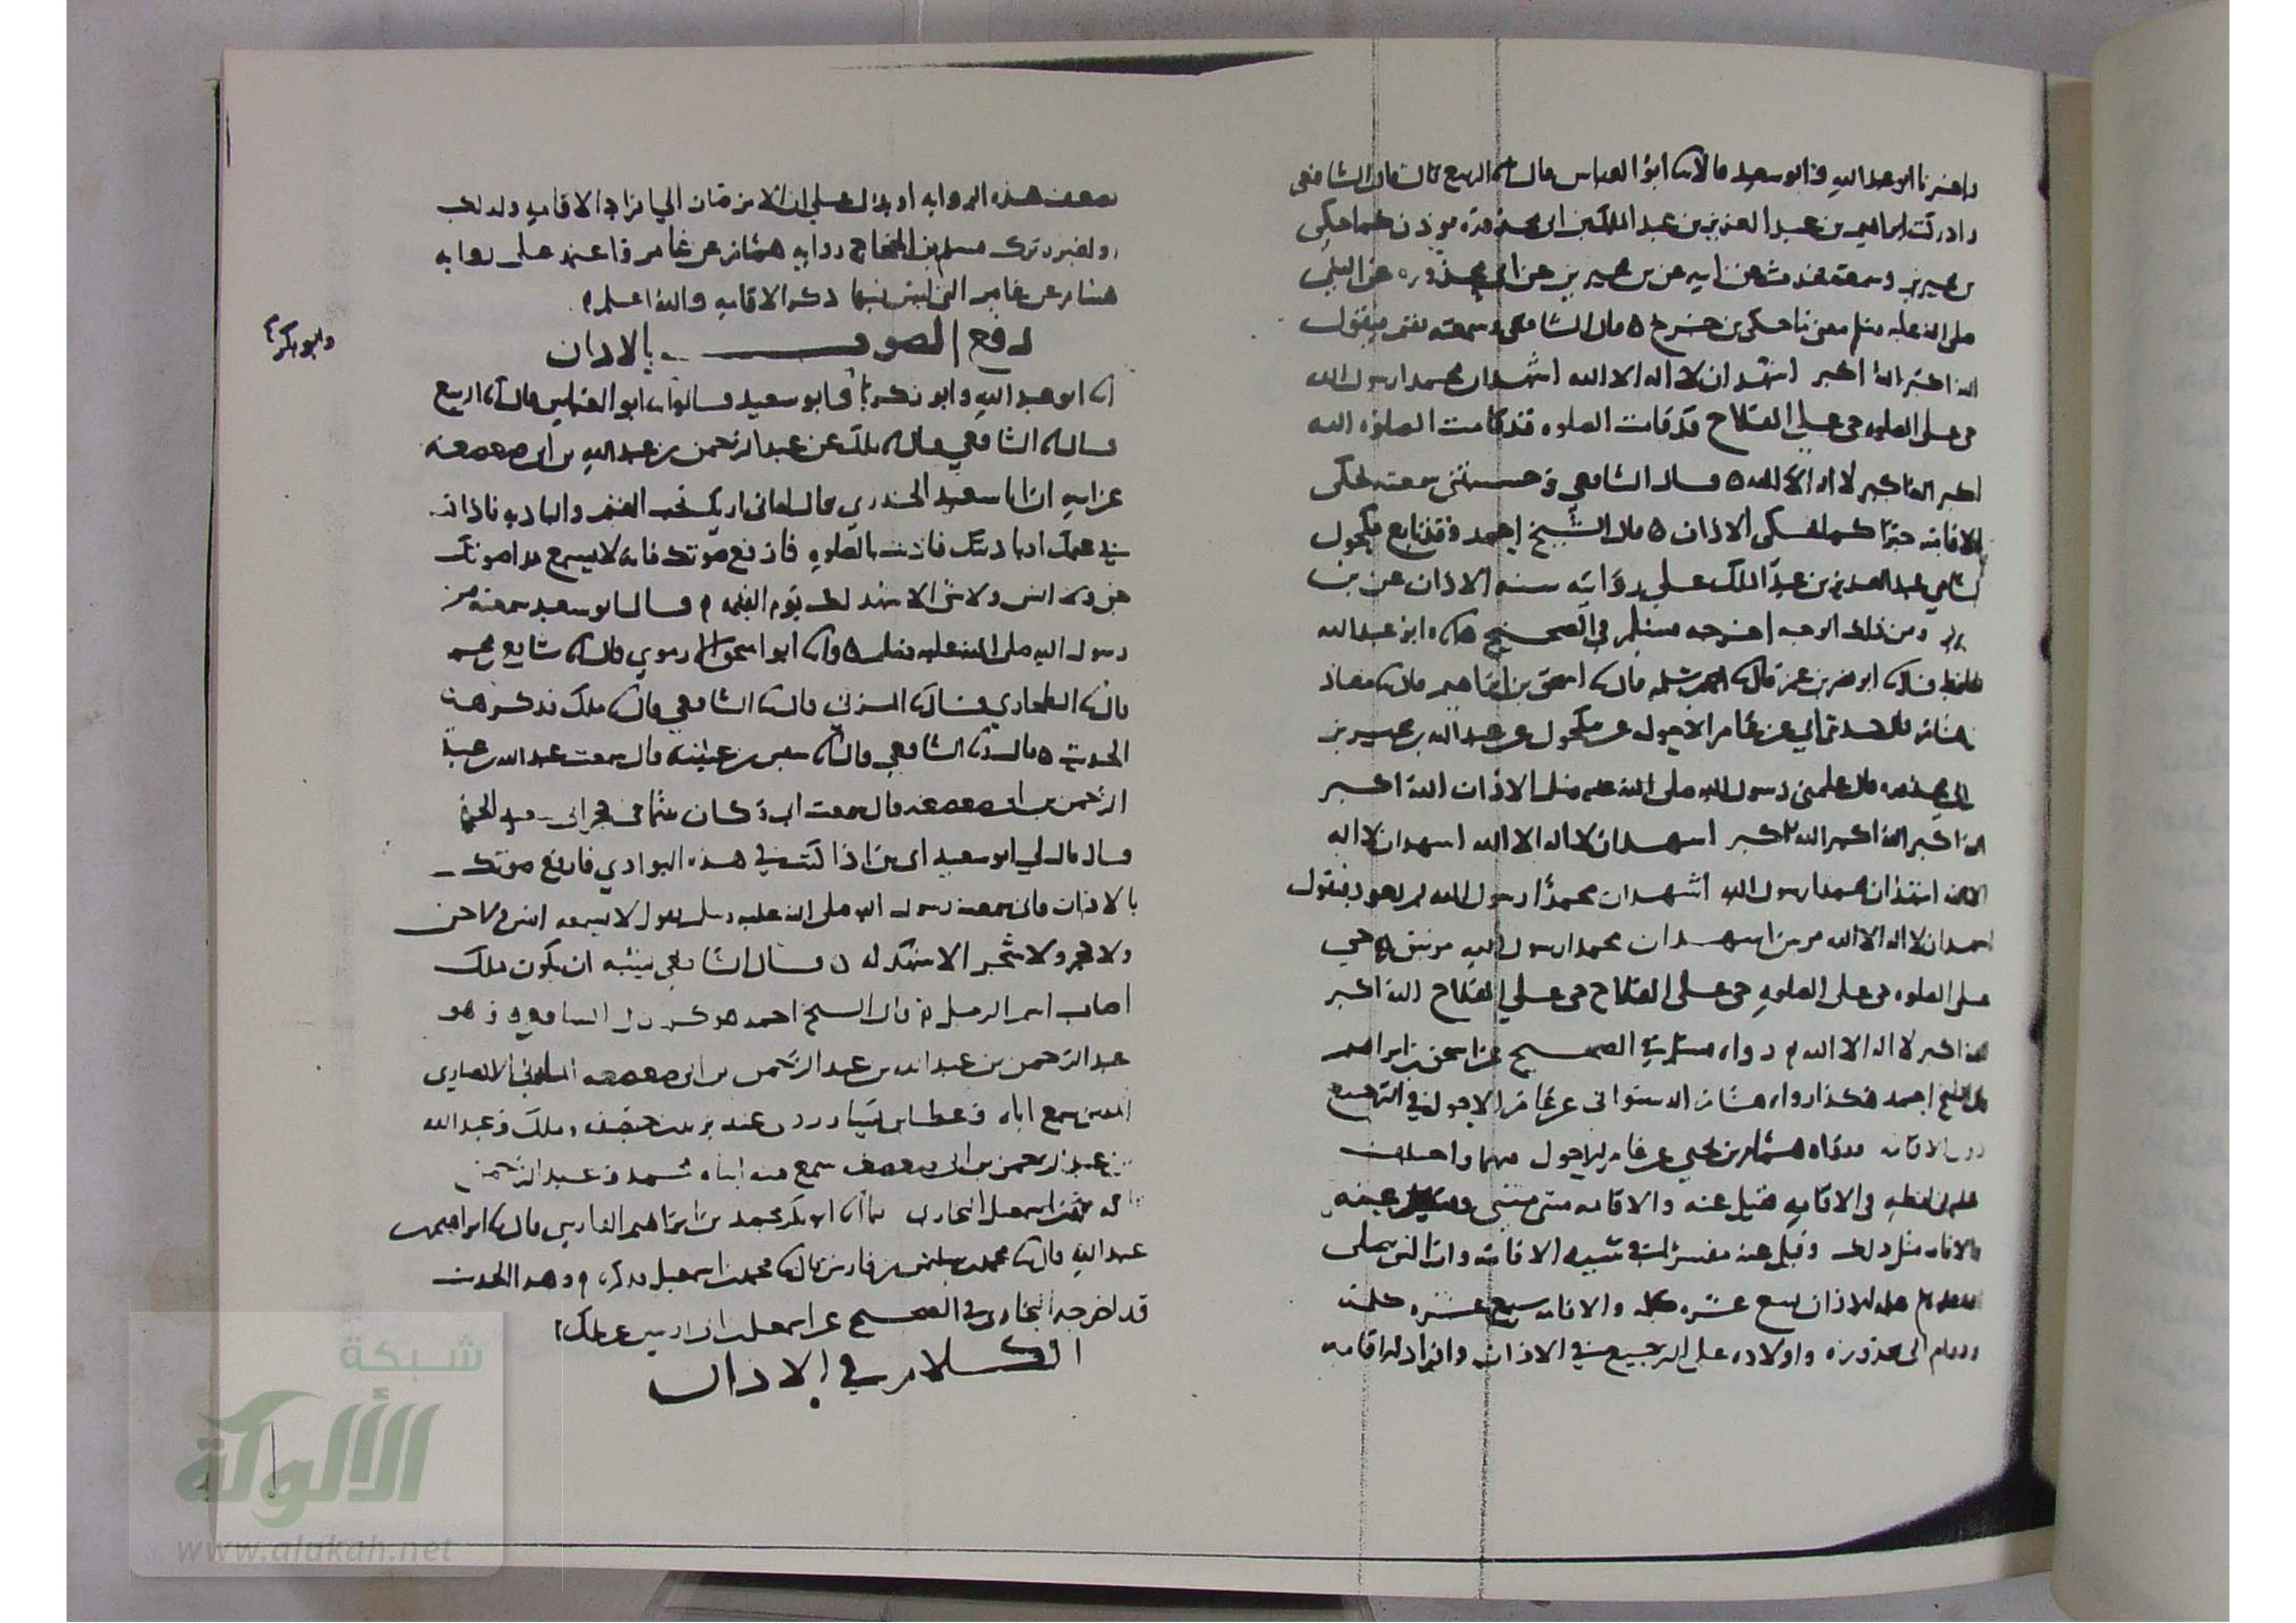 واخبرنا ابو عبد الله وابو سعيد قالا انا ابو العباس قال انا الربيع قال قال الشافعي
وادركت ابراهيم بن عبد العزيز بن عبد الملك بن ابي محذورة يوذن كما حكى
بن محيريز وسمعته يحدث عن ابيه عن بن محيريز عن ابي محذوره عن النبي
صلى الله عليه وسلم معنى ما حكى بن جريج ٥ قال الشافعي وسمعته يقيم فيقول
الله اكبر الله اكبر اشهد ان لا اله الا الله اشهد ان محمدا رسول الله
حي على الصلوه حي على الفلاح قد قامت الصلوه قد قامت الصلوه الله
اكبر الله اكبر لا اله الا الله ٥ قال الشافعي وحسبتني سمعته يحكي
الاقامه خبرا كما يحكى الاذان ٥ قال الشيخ احمد وقد تابع مكحول
الشامي عبد العزيز بن عبد الملك على روايته سنه الاذان عن بن
محيريز ومن ذلك الوجه اخرجه مسلم في الصحيح اناه ابو عبد الله
الحافظ قال انا ابو نصر بن عمر قال انا احمد بن سلمه قال انا اسحق بن ابراهيم قال انا معاذ
بن هشام قال حدثني ابي عن عامر الاحول عن مكحول عن عبد الله بن محيريز
عن ابي محذوره قال علمني رسول الله صلى الله عليه وسلم الاذان الله اكبر
الله اكبر الله اكبر الله اكبر اشهد ان لا اله الا الله اشهد ان لا اله
الا الله اشهد ان محمدا رسول الله اشهد ان محمدا رسول الله ثم يعود فيقول
اشهد ان لا اله الا الله مرتين اشهد ان محمدا رسول الله مرتين حي
على الصلوه حي على الصلوه حي على الفلاح حي على الفلاح الله اكبر
الله اكبر لا اله الا الله ٥ رواه مسلم في الصحيح عن اسحق بن ابراهيم
قال الشيخ احمد هكذا رواه هشام الدستوائي عن عامر الاحول في الترجيع
دون الاقامه ورواه همام بن يحيى عن عامر الاحول فيهما واختلف
عليه في لفظه في الاقامه فقيل عنه والاقامه مثنى مثنى وقيل عنه
والاقامه مثل ذلك وقيل عنه مفسرا في تثنيه الاقامه وان النبي صلى
الله عليه وسلم علمه الاذان تسع عشره كلمه والاقامه سبع عشره كلمه
ودوام ابي محذوره واولاده على الترجيع في الاذان وافراد الاقامه
يضعف هذه الروايه او يدل على ان الامر صار الى افراد الاقامه ولذلك
ولغيره ترك مسلم بن الحجاج روايه همام عن عامر واعتمد على روايه
هشام عن عامر التي ليس فيها ذكر الاقامه والله اعلم ٥
رفع الصوت بالاذان
انا ابو عبد الله وابو زكريا وابو سعيد قالوا انا ابو العباس قال انا الربيع
وابو بكر
قال انا الشافعي قال انا ملك عن عبد الرحمن بن عبد الله بن ابي صعصعه
عن ابيه ان ابا سعيد الخدري قال له اني اراك تحب الغنم والباديه فاذا كنت
في غنمك او باديتك فاذنت بالصلوه فارفع صوتك فانه لا يسمع مدا صوتك
جن ولا انس ولا شي الا شهد لك يوم القيمه ٥ قال ابو سعيد سمعته من
رسول الله صلى الله عليه وسلم ٥ وانا ابو اسحق الارموي قال انا شافع بن محمد
قال انا الطحاوي قال انا المزني قال انا الشافعي قال انا ملك فذكر هذا
الحديث ٥ قال انا الشافعي قال انا سفين بن عيينه قال سمعت عبد الله بن عبد
الرحمن بن ابي صعصعه قال سمعت ابي وكان يتيما في حجر ابي سعيد الخدري
قال قال لي ابو سعيد اي بني اذا كنت في هذه البوادي فارفع صوتك
بالاذان فاني سمعت رسول الله صلى الله عليه وسلم يقول لا يسمعه انس ولا جن
ولا حجر ولا شجر الا شهد له ٥ قال الشافعي يشبه ان يكون ملك
اصاب اسم الرجل ٥ قال الشيخ احمد هو كما قال الشافعي وهو
عبد الرحمن بن عبد الله بن عبد الرحمن بن ابي صعصعه المازني الانصاري
المدني سمع اباه وعطا بن يسار روى عنه يزيد بن خصيفه وملك وعبد الله
بن عبد الرحمن بن ابي صعصعه سمع منه ابناه محمد وعبد الرحمن
قاله محمد بن اسمعيل البخاري انا ابو بكر محمد بن ابراهيم الفارسي قال انا ابراهيم بن
عبد الله قال انا محمد بن سليمن بن فارس قال انا محمد بن اسمعيل فذكره ٥ وهذا الحديث
قد اخرجه البخاري في الصحيح عن اسمعيل بن ابي اويس عن ملك
الكلام في الاذان
شبكة
الألوكة
www.alukah.net